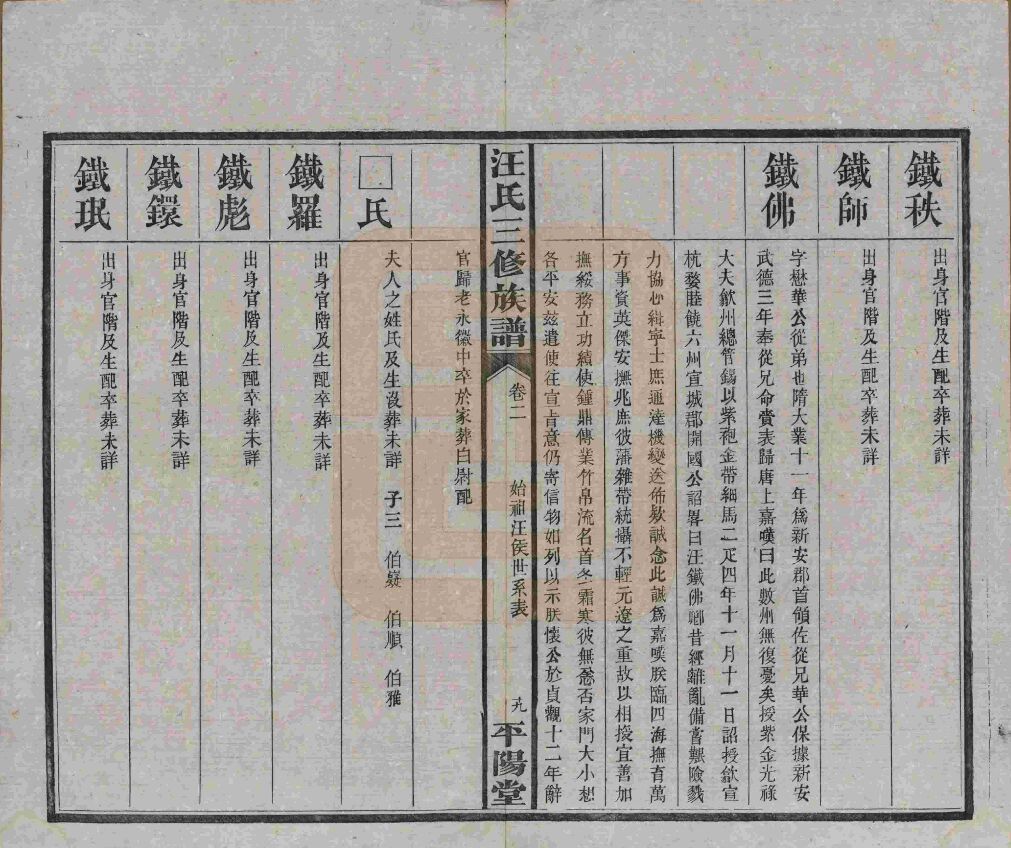 鐵秩
出身官階及生配卒葬未詳
鐵師
出身官階及生配卒葬未詳
鐵佛
字懋華公從弟也隋大業十一年爲新安郡首領佐從兄華公保據新安
武德三年奉從兄命賫表歸唐上嘉嘆曰此數州無復憂矣授紫金光祿
大夫歙州總管錫以紫袍金帶細馬二疋四年十一月十一日詔授歙宣
杭婺睦饒六州宣城郡開國公詔畧曰汪鐵佛鄉昔經離亂備嘗艱險戮
力協心緝寧士庶通達機變送佈欵誠念此誠爲嘉嘆朕臨四海撫育萬
方事資英傑安撫兆庶彼藩雜帶統攝不輕元遼之重故以相授宜善加
撫綏務立功績使鍾鼎傳業竹帛流名首冬霜寒彼無恙否家門大小想
各平安兹遣使往宣肯意仍寄信物如列以示朕懷公於貞觀十二年辭
汪氏三修族譜
卷二
始祖汪侯世系表
十九
平陽堂
官歸老永徽中卒於家葬白尉配
□氏
夫人之姓氏及生沒葬未詳 子三 伯嶷 伯順 伯雅
鐵羅
出身官階及生配卒葬未詳
鐵彪
出身官階及生配卒葬未詳
鐵鐶
出身官階及生配卒葬未詳
鐵珉
出身官階及生配卒葬未詳